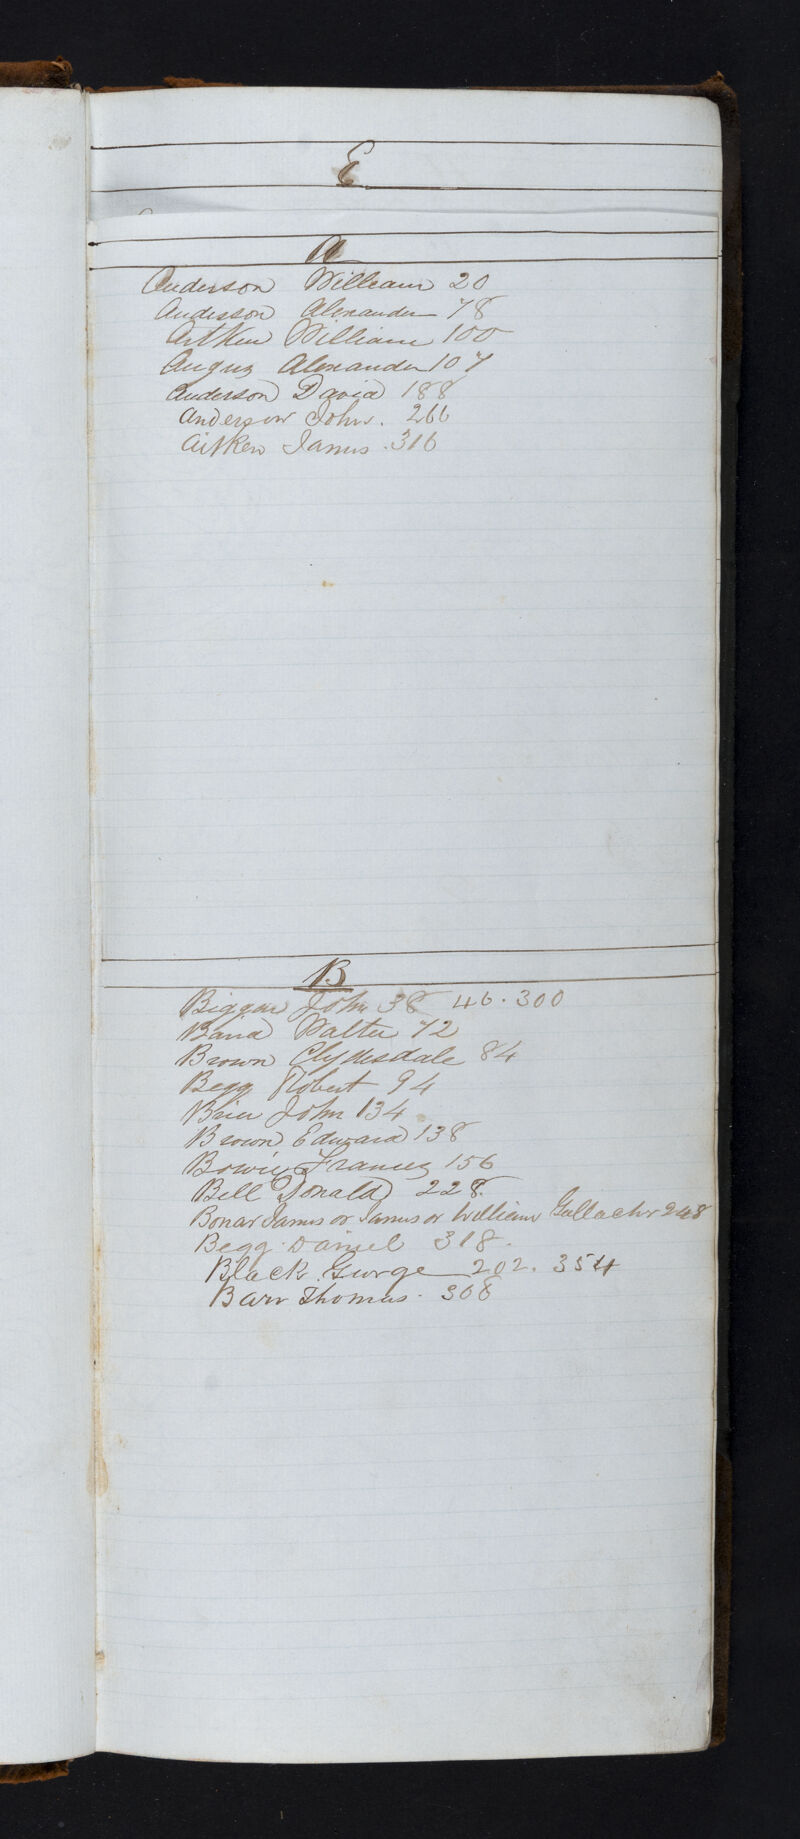 E
A
Anderson William 20
Anderson Alexander 78
Aitken William 100
Angus Alexander 107
Anderson David 188
Anderson John. 266
Aitken James. 316
B
Biggar John 38 46. 300
Baird Walter 72
Brown Clydesdale 84
Begg Robert 94
Brier John 134
Brown Edward 138
Bowie Francis 156
Bell Donald 228.
Bonar James or James or William Gallacher 248
Begg Daniel 318.
Black George 202. 354
Barr Thomas. 308